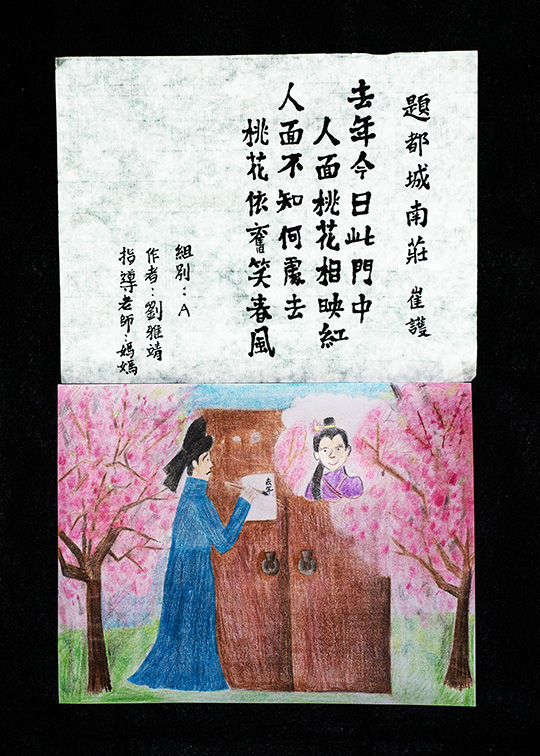 題都城南莊 崔護
去年今日此門中
人面桃花相映紅
人面不知何處去
桃花依舊笑春風
組別：A
作者：劉雅靖
指導老師：媽媽
去年